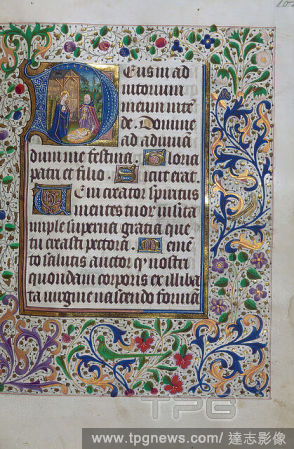 Deus in ad
iutorium
meum intē
de. Domine
ad adiuuā
dum me festina. Gloria
patri et filio. Sicut erat.
Veni creator spiritus
mentes tuoꝝ visita
imple superna gratia que
tu creasti pectora. Memē
to salutis auctor ꝙ nostri
quondam corporis ex illiba
ta virgine nascendo formā
TPG
www.tpgnews.com / 達志影像